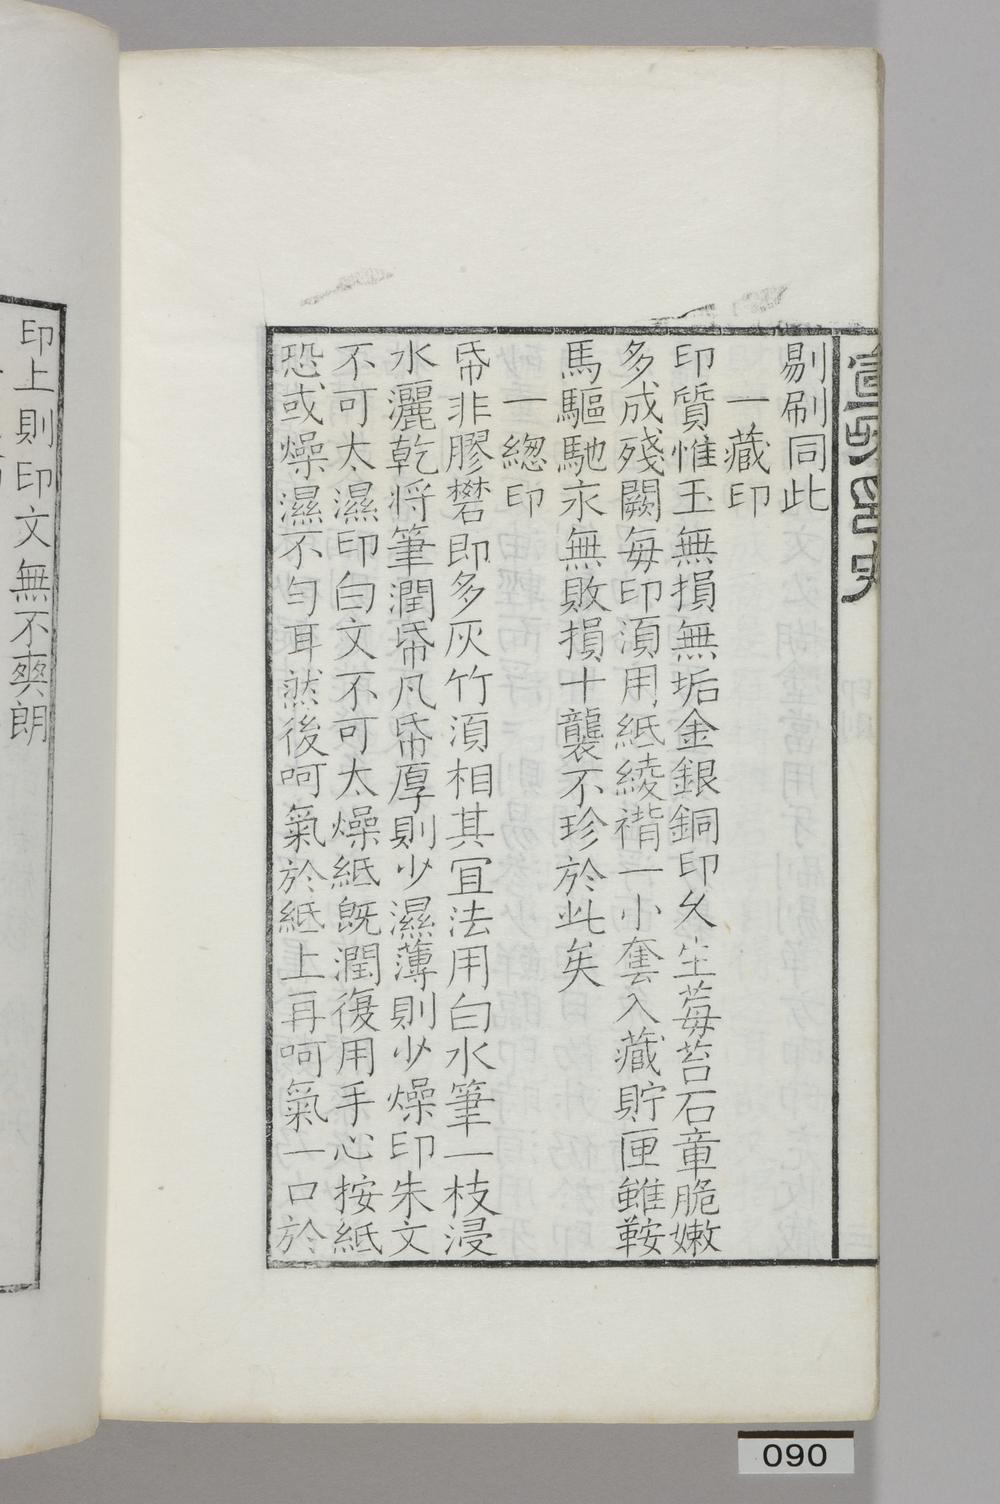 剔刷同此
一藏印
印質惟玉無損無垢金銀銅印久生莓苔石章脆嫩
多成殘闕每印須用紙綾褙一小套入藏貯匣雖鞍
馬驅馳永無敗損十襲不珍於此矣
一總印
帋非膠礬即多灰竹須相其宜法用白水筆一枝浸
水灑乾将筆潤帋凡帋厚則少濕薄則少燥印朱文
不可太濕印白文不可太燥紙既潤復用手心按紙
恐或燥濕不勻耳然後呵氣於紙上再呵氣一口於
印上則印文無不爽朗
090